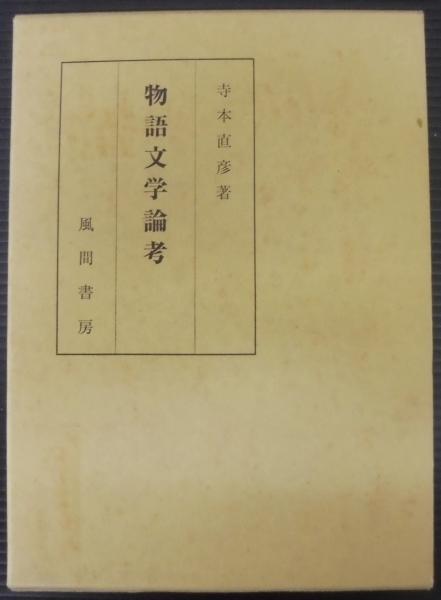 寺本直彦著
物語文学論考
風間書房